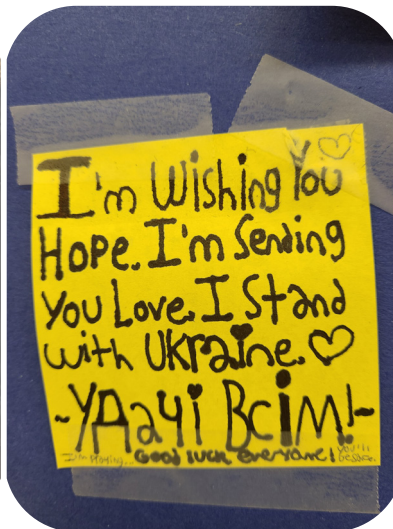 I'm Wishing You
Hope. I'm Sending
You Love. I Stand
with Ukraine.
~Удачі Всім!~
Good luck everyone!